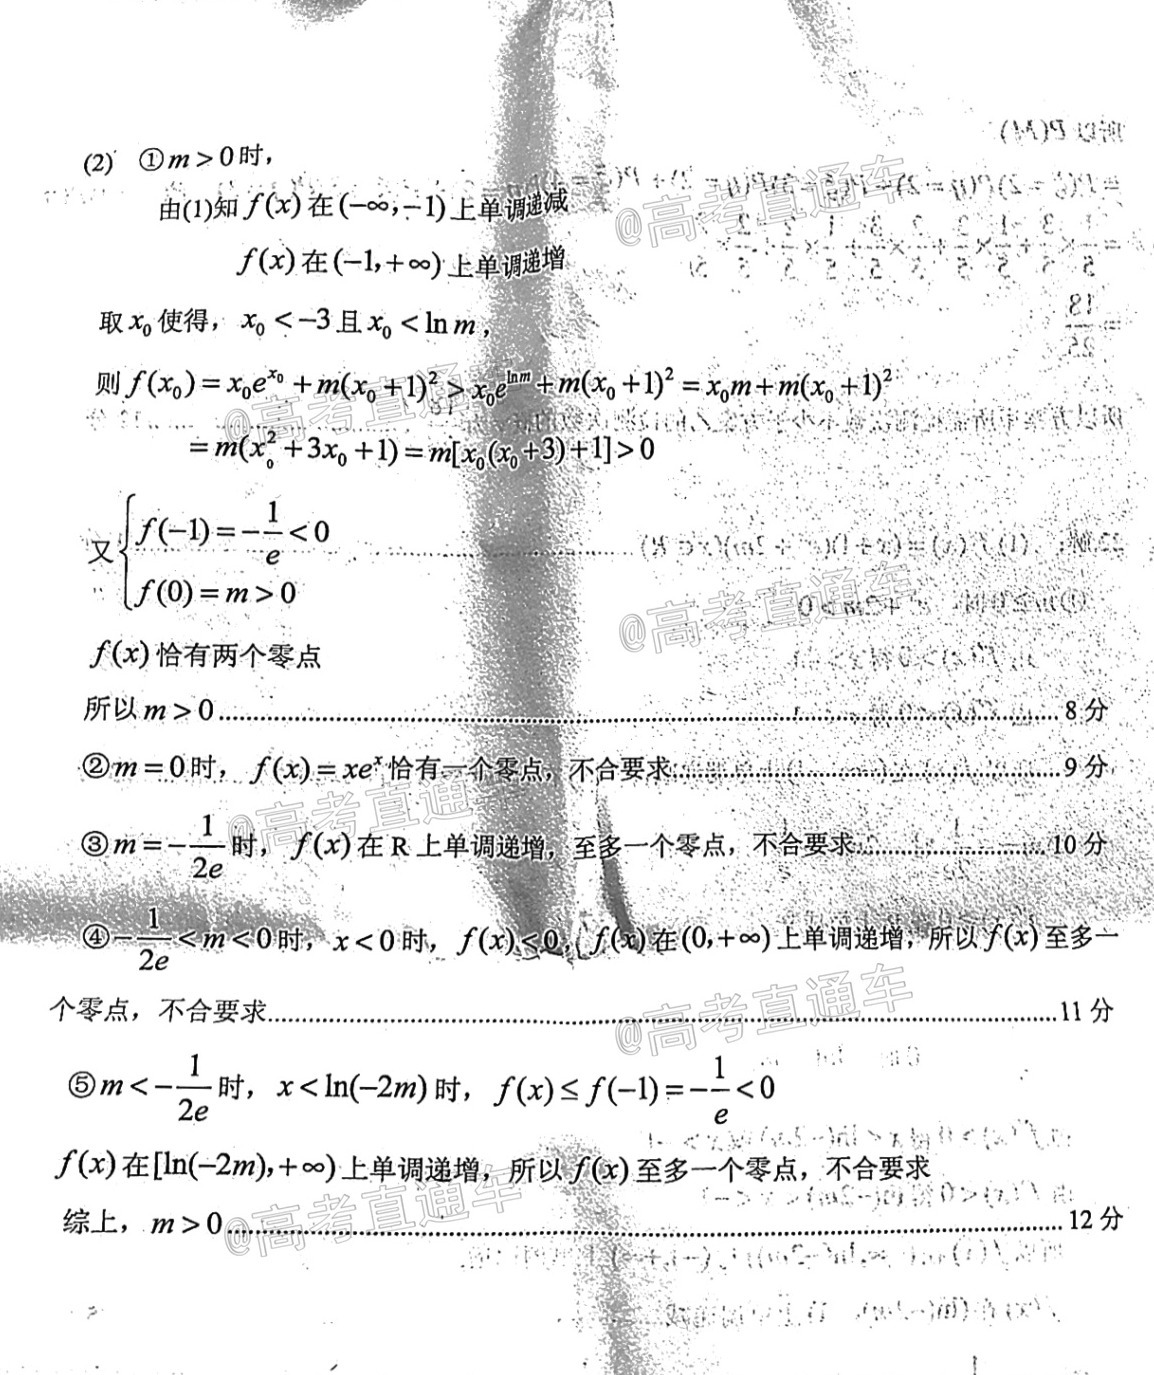 (2) ①m>0时，
由(1)知f(x)在(-∞,-1)上单调递减
f(x)在(-1,+∞)上单调递增
取x₀使得，x₀<-3且x₀<ln m，
则f(x₀)=x₀e^{x₀}+m(x₀+1)²>x₀e^{ln m}+m(x₀+1)²=x₀m+m(x₀+1)²
=m(x₀²+3x₀+1)=m[x₀(x₀+3)+1]>0
又{f(-1)=-1/e<0
f(0)=m>0
f(x)恰有两个零点
所以m>0……8分
②m=0时，f(x)=xeˣ恰有一个零点，不合要求……9分
③m=-1/2e时，f(x)在R上单调递增，至多一个零点，不合要求……10分
④-1/2e<m<0时，x<0时，f(x)<0，f(x)在(0,+∞)上单调递增，所以f(x)至多一
个零点，不合要求……11分
⑤m<-1/2e时，x<ln(-2m)时，f(x)≤f(-1)=-1/e<0
f(x)在[ln(-2m),+∞)上单调递增，所以f(x)至多一个零点，不合要求
综上，m>0……12分
@高考直通车
@高考直通车
@高考直通车
@高考直通车
@高考直通车
@高考直通车